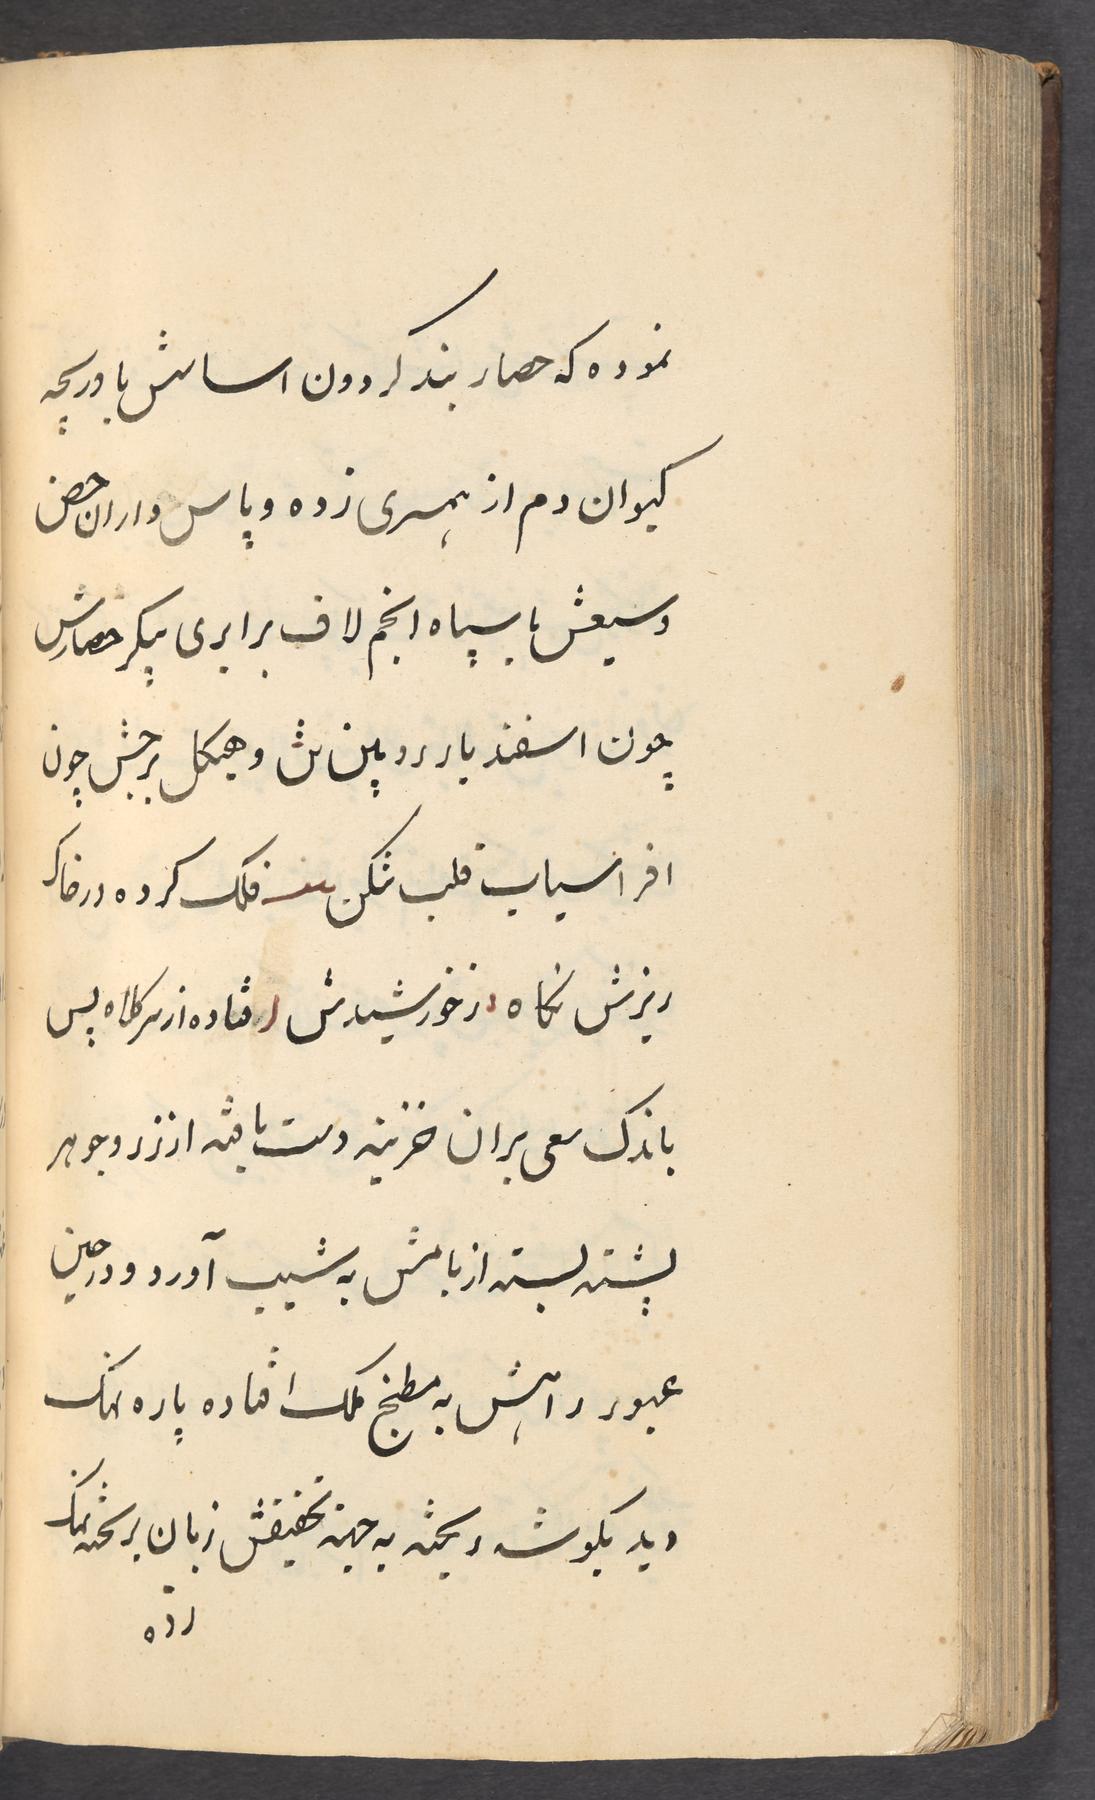 نموده که حصار بند کردون اساسش با دریچه
کیوان دم از همسری زده و پاس داران حصن
وسیعش با سپاه انجم لاف برابری پیکر حصارش
چون اسفندیار رویین تن و هیکل برجش چون
افراسیاب قلب شکن فلک کرده در خاک
ریزش نکاه زر خورشیدش فتاده از سر کلاه پس
باندک سعی بران خزینه دست یافته از زر و جوهر
پشته بسته از بامش به شیب آورد و در حین
عبور راهش به مطبخ ملک افتاده پاره نمک
دید بکوشه ریخته به جهته تحقیقش زبان بر تخته نمک
زده